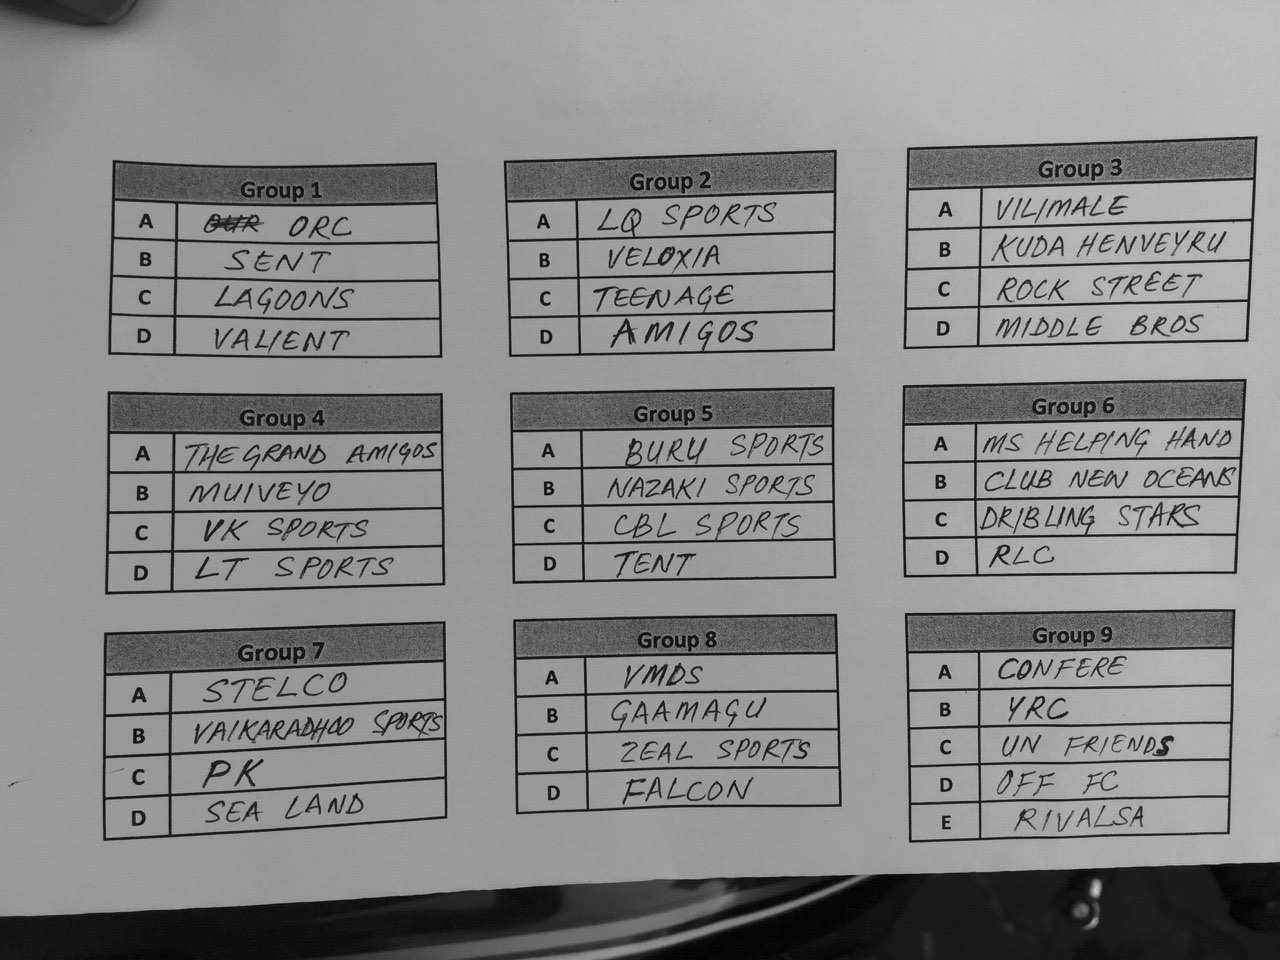 Group 1
A ORC
B SENT
C LAGOONS
D VALIENT
Group 2
A LQ SPORTS
B VELOXIA
C TEENAGE
D AMIGOS
Group 3
A VILIMALE
B KUDA HENVEYRU
C ROCK STREET
D MIDDLE BROS
Group 4
A THE GRAND AMIGOS
B MUIVEYO
C VK SPORTS
D LT SPORTS
Group 5
A BURU SPORTS
B NAZAKI SPORTS
C CBL SPORTS
D TENT
Group 6
A MS HELPING HAND
B CLUB NEW OCEANS
C DRIBLING STARS
D RLC
Group 7
A STELCO
B VAIKARADHOO SPORTS
C PK
D SEA LAND
Group 8
A VMDS
B GAAMAGU
C ZEAL SPORTS
D FALCON
Group 9
A CONFERE
B YRC
C UN FRIENDS
D OFF FC
E RIVALSA